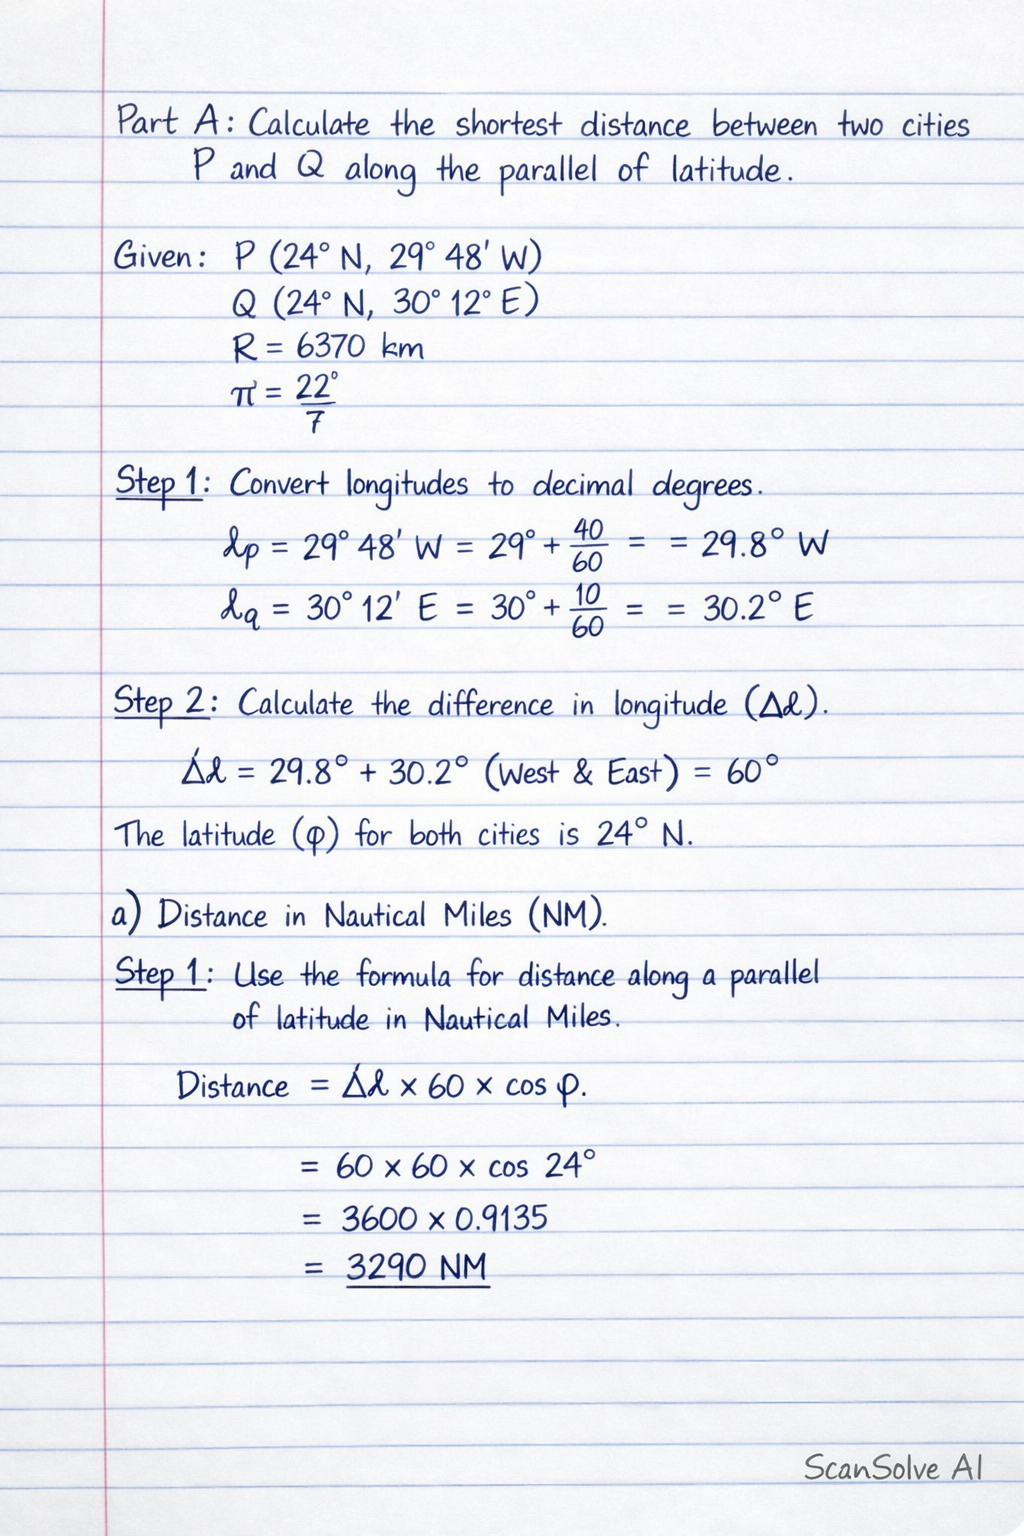 Part A: Calculate the shortest distance between two cities
P and Q along the parallel of latitude.
Given: P (24° N, 29° 48' W)
Q (24° N, 30° 12° E)
R = 6370 km
π = 22°/7
Step 1: Convert longitudes to decimal degrees.
λp = 29° 48' W = 29° + 40/60 = = 29.8° W
λq = 30° 12' E = 30° + 10/60 = = 30.2° E
Step 2: Calculate the difference in longitude (Δλ).
Δλ = 29.8° + 30.2° (West & East) = 60°
The latitude (φ) for both cities is 24° N.
a) Distance in Nautical Miles (NM).
Step 1: Use the formula for distance along a parallel
of latitude in Nautical Miles.
Distance = Δλ × 60 × cos φ.
= 60 × 60 × cos 24°
= 3600 × 0.9135
= 3290 NM
ScanSolve AI